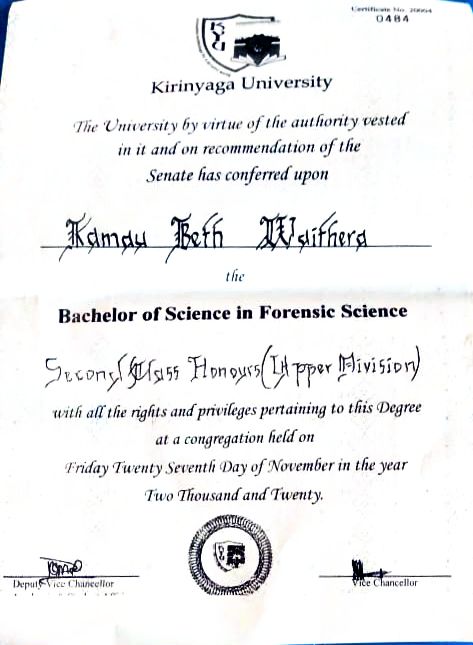 Certificate No. 20004
0484
KYU
Kirinyaga University
The University by virtue of the authority vested
in it and on recommendation of the
Senate has conferred upon
Kamau Beth Waithera
the
Bachelor of Science in Forensic Science
Second Class Honours (Upper Division)
with all the rights and privileges pertaining to this Degree
at a congregation held on
Friday Twenty Seventh Day of November in the year
Two Thousand and Twenty.
Deputy Vice Chancellor
Vice Chancellor